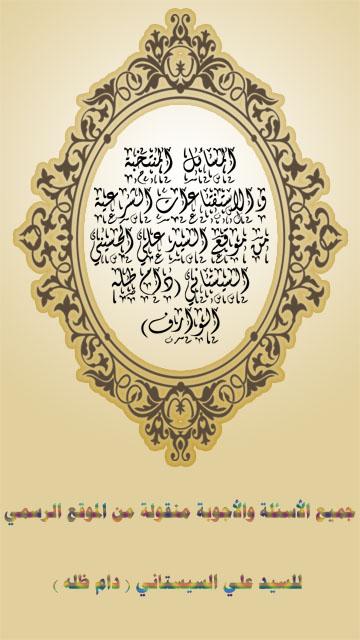 المسائل المنتخبة
والاستفتاءات الشرعية
من موقع السيد علي الحسيني
السيستاني (دام ظله
الوارف)
جميع الأسئلة والأجوبة منقولة من الموقع الرسمي
للسيد علي السيستاني ( دام ظله )